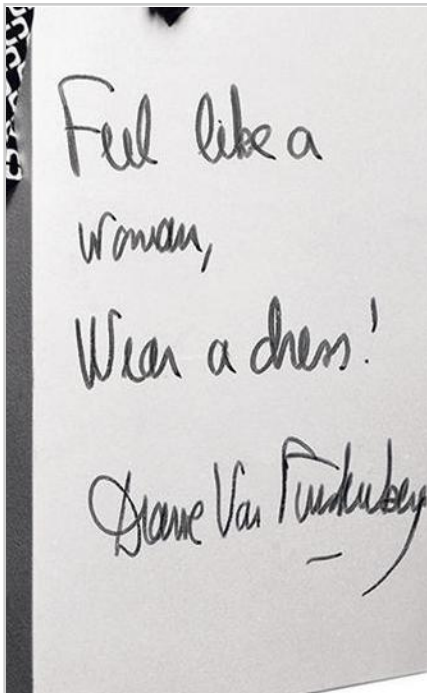 Feel like a
woman,
Wear a dress!
Diane Von Furstenberg